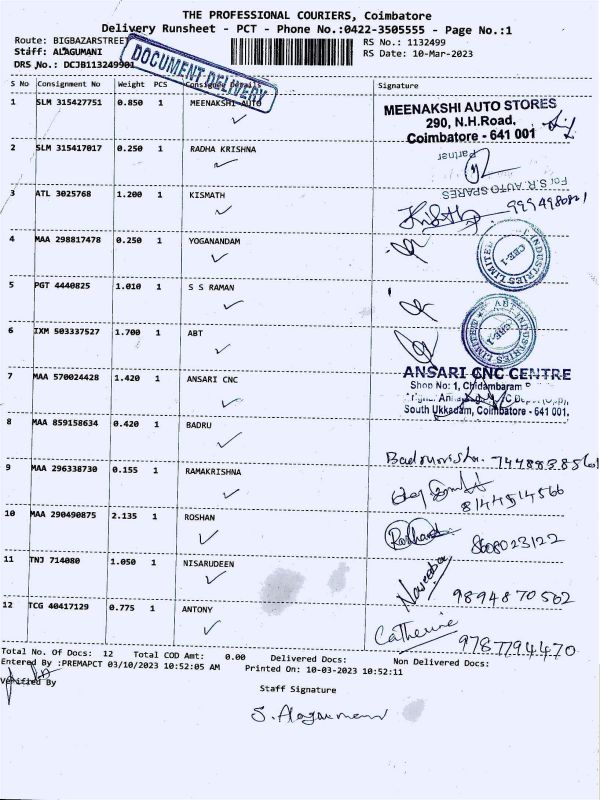 THE PROFESSIONAL COURIERS, Coimbatore
Delivery Runsheet - PCT - Phone No.:0422-3505555 - Page No.:1
Route: BIGBAZARSTREET RS No.: 1132499
Staff: ALAGUMANI RS Date: 10-Mar-2023
DRS No.: DCJB113249901
DOCUMENT DELIVERY
S No Consignment No Weight PCS Consignee Details Signature
1 SLM 315427751 0.850 1 MEENAKSHI AUTO
MEENAKSHI AUTO STORES
290, N.H.Road,
Coimbatore - 641 001
2 SLM 315417017 0.250 1 RADHA KRISHNA
Partner
For S.R. AUTO SPARES
3 ATL 3025768 1.200 1 KISMATH
4 MAA 298817478 0.250 1 YOGANANDAM
INDUSTRIES LIMITED
CBE-1
5 PGT 4440825 1.010 1 S S RAMAN
6 IXM 503337527 1.700 1 ABT
ABT INDUSTRIES LIMITED
CBE-1
7 MAA 570024428 1.420 1 ANSARI CNC
ANSARI CNC CENTRE
Shop No: 1, Chidambaram
South Ukkadam, Coimbatore - 641 001.
8 MAA 859158634 0.420 1 BADRU
9 MAA 296338730 0.155 1 RAMAKRISHNA
8144514566
10 MAA 290490875 2.135 1 ROSHAN
Roshan 8608023122
11 TNJ 714080 1.050 1 NISARUDEEN
9894870502
12 TCG 40417129 0.775 1 ANTONY
Catherine 9787794470
Total No. Of Docs: 12 Total COD Amt: 0.00 Delivered Docs: Non Delivered Docs:
Entered By :PREMAPCT 03/10/2023 10:52:05 AM Printed On: 10-03-2023 10:52:11
Verified By
Staff Signature
S. Alagumani